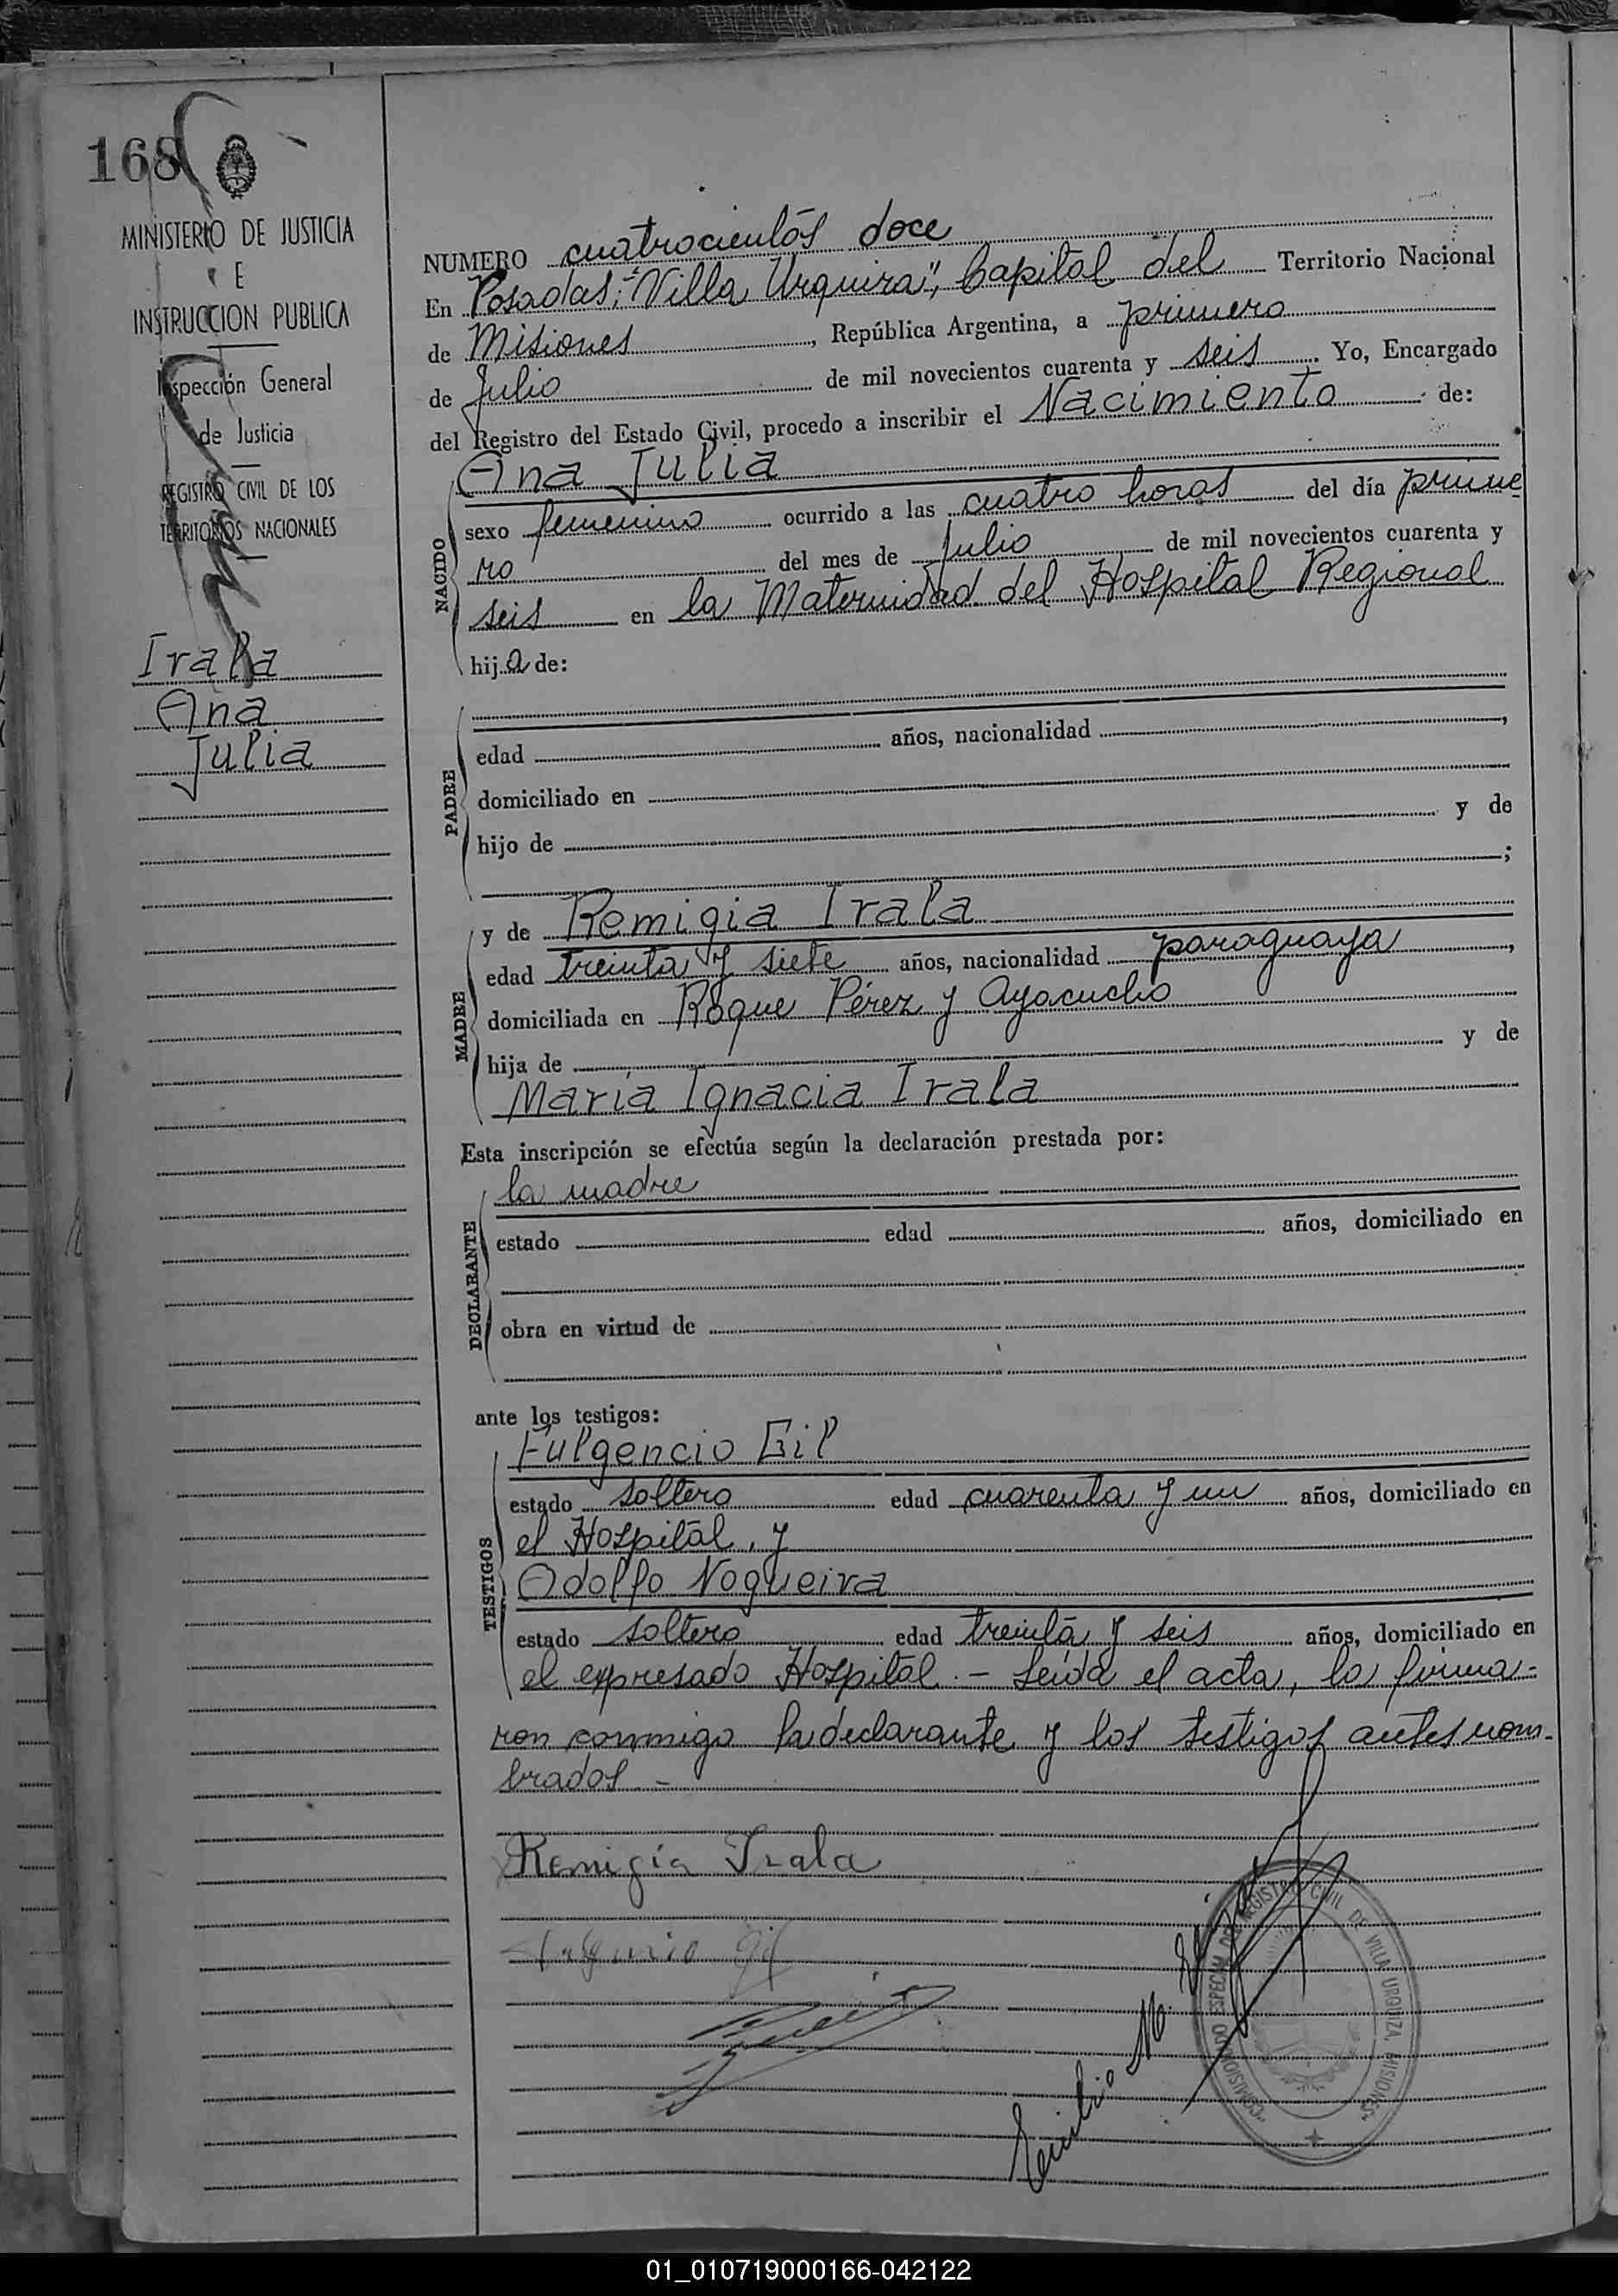 168
MINISTERIO DE JUSTICIA
E
INSTRUCCION PUBLICA
Inspección General
de Justicia
REGISTRO CIVIL DE LOS
TERRITORIOS NACIONALES
Irala
Ana
Julia
NUMERO cuatrocientos doce
En Posadas, "Villa Urquiza", Capital del Territorio Nacional
de Misiones, República Argentina, a primero
de Julio de mil novecientos cuarenta y seis. Yo, Encargado
del Registro del Estado Civil, procedo a inscribir el Nacimiento de:
NACIDO
Ana Julia
sexo femenino ocurrido a las cuatro horas del día prime
ro del mes de Julio de mil novecientos cuarenta y
seis en la Maternidad del Hospital Regional
hija de:
PADRE
edad años, nacionalidad ,
domiciliado en
hijo de y de
;
MADRE
y de Remigia Irala
edad treinta y siete años, nacionalidad paraguaya,
domiciliada en Roque Pérez y Ayacucho
hija de y de
María Ignacia Irala
Esta inscripción se efectúa según la declaración prestada por:
DECLARANTE
la madre
estado edad años, domiciliado en
obra en virtud de
ante los testigos:
TESTIGOS
Fulgencio Gil
estado soltero edad cuarenta y un años, domiciliado en
el Hospital, y
Adolfo Nogueira
estado soltero edad treinta y seis años, domiciliado en
el expresado Hospital. - Leída el acta, la firma-
ron conmigo la declarante y los testigos antes nom-
brados -
Remigia Irala
Fulgencio Gil
Emilio M.
COMISIONADO ESPECIAL DEL REGISTRO CIVIL DE VILLA URQUIZA, MISIONES
01_010719000166-042122